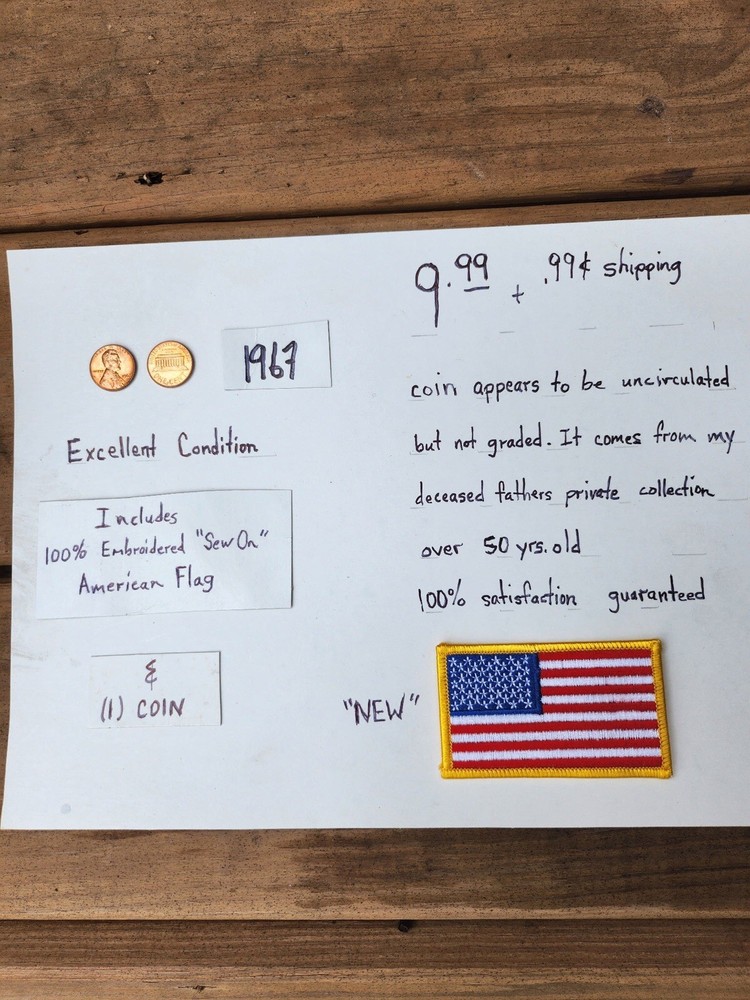 1967
Excellent Condition
Includes
100% Embroidered "Sew On"
American Flag
&
(1) COIN
9.99 + .99¢ shipping
coin appears to be uncirculated
but not graded. It comes from my
deceased fathers private collection
over 50 yrs. old
100% satisfaction guaranteed
"NEW"